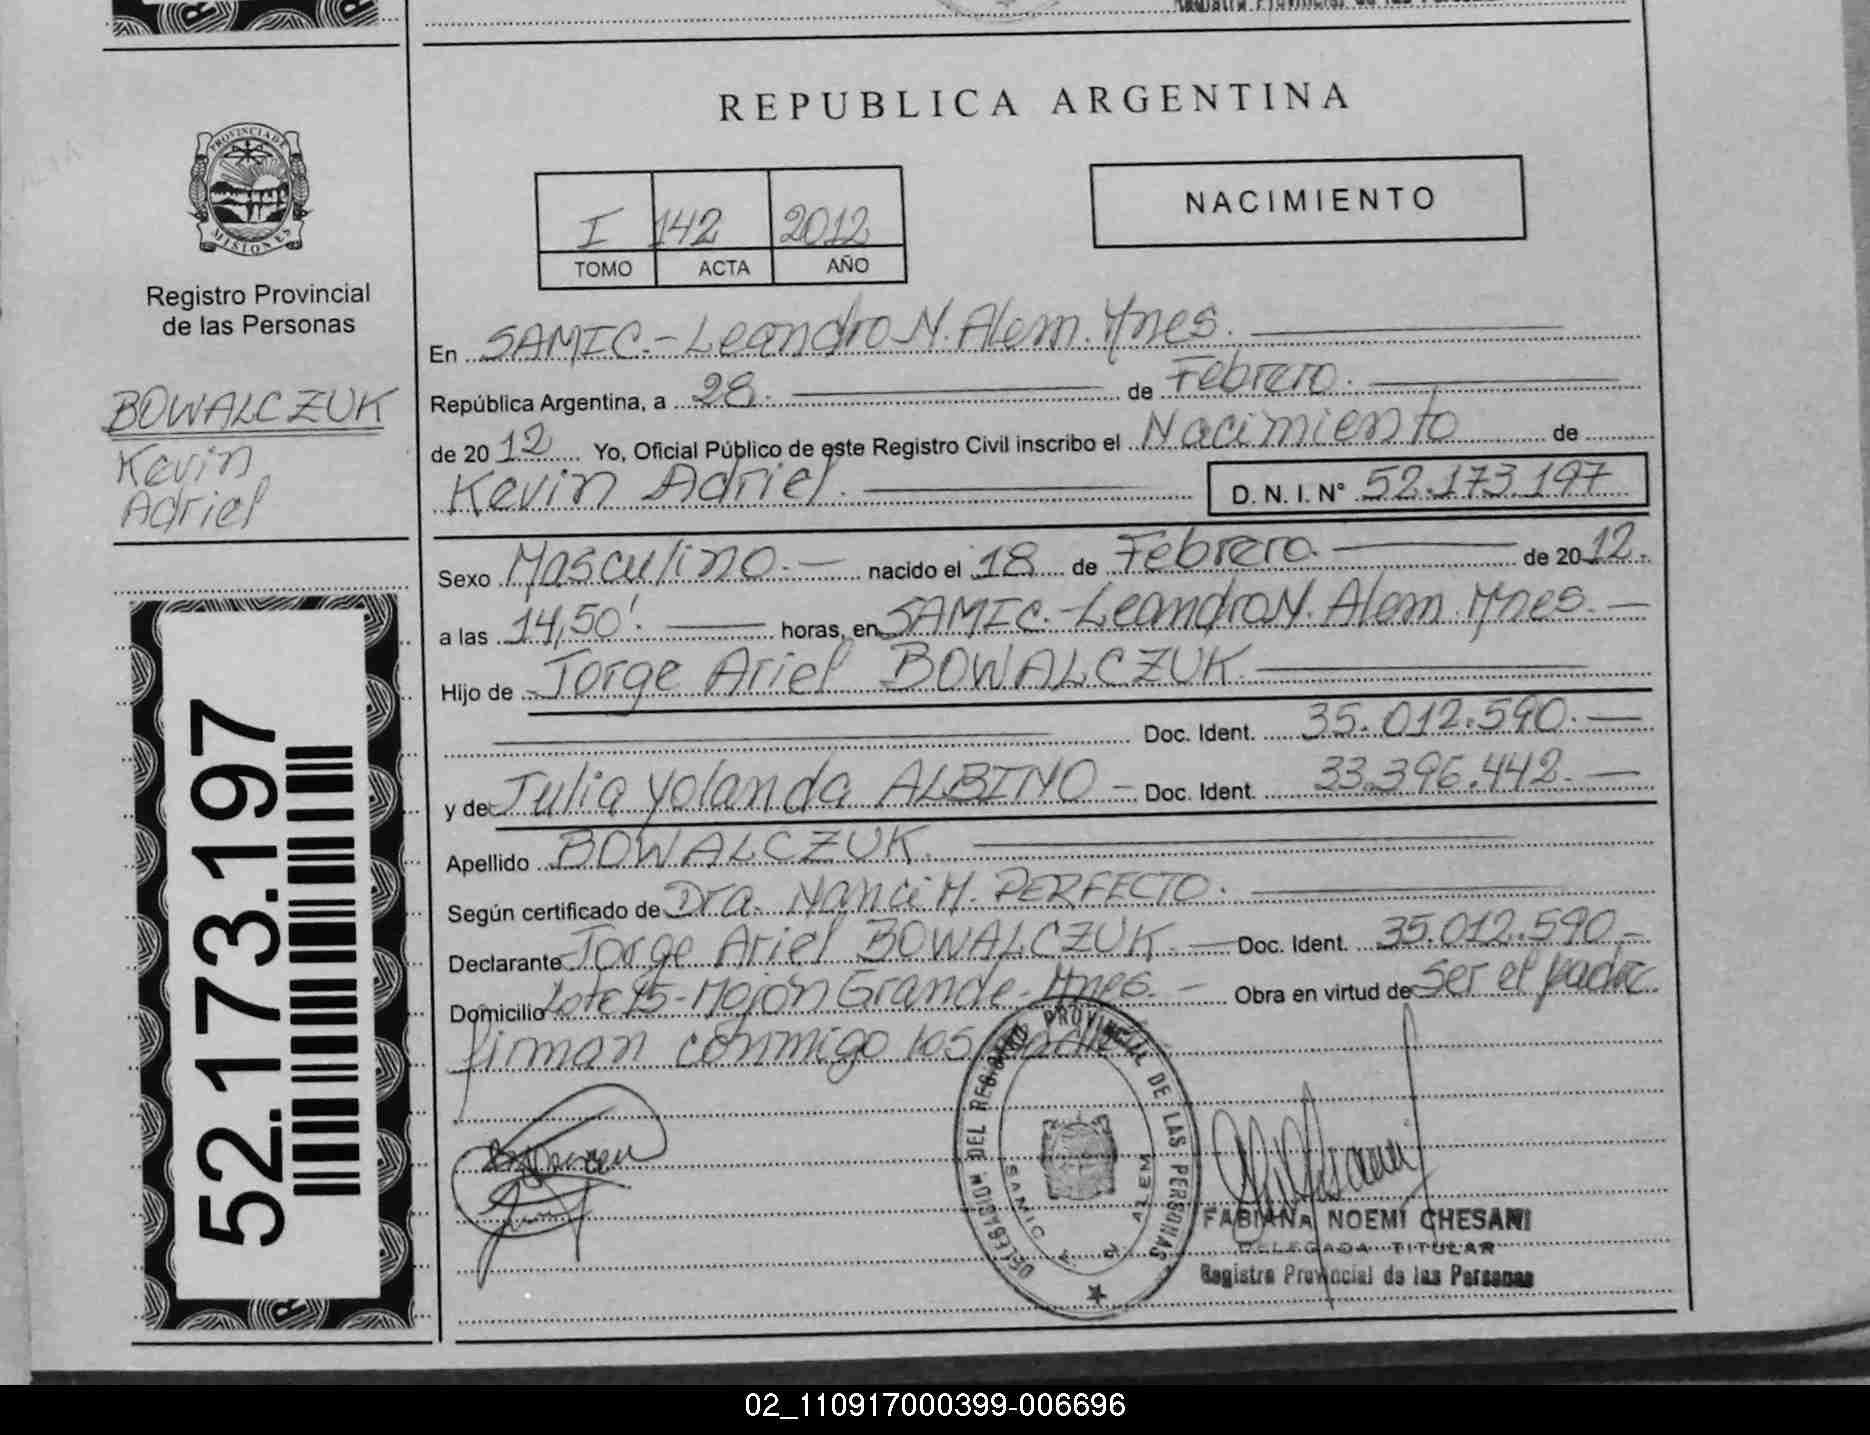 Registro Provincial de las Personas
REPUBLICA ARGENTINA
PROVINCIA DE
MISIONES
Registro Provincial
de las Personas
BOWALCZUK
Kevin
Adriel
52.173.197
I 142 2012
TOMO ACTA AÑO
NACIMIENTO
En SAMIC.-Leandro N. Alem. Mnes.
República Argentina, a 28. de Febrero.
de 2012 Yo, Oficial Público de este Registro Civil inscribo el Nacimiento de
Kevin Adriel. D. N. I. N° 52.173.197
Sexo Masculino.- nacido el 18 de Febrero. de 2012.
a las 14,50'. horas, en SAMIC.-Leandro N. Alem. Mnes.-
Hijo de Jorge Ariel BOWALCZUK.
Doc. Ident. 35.012.590.-
y de Julia Yolanda ALBINO- Doc. Ident. 33.396.442.-
Apellido BOWALCZUK.
Según certificado de Dra. Nanci M. PERFECTO.
Declarante Jorge Ariel BOWALCZUK.- Doc. Ident. 35.012.590.-
Domicilio Lote 15-Mojón Grande-Mnes.- Obra en virtud de ser el padre.
firman conmigo los
DEL REGISTRO PROVINCIAL DE LAS PERSONAS
SAMIC ALEM
FABIANA NOEMI CHESANI
DELEGADA TITULAR
Registro Provincial de las Personas
02_110917000399-006696